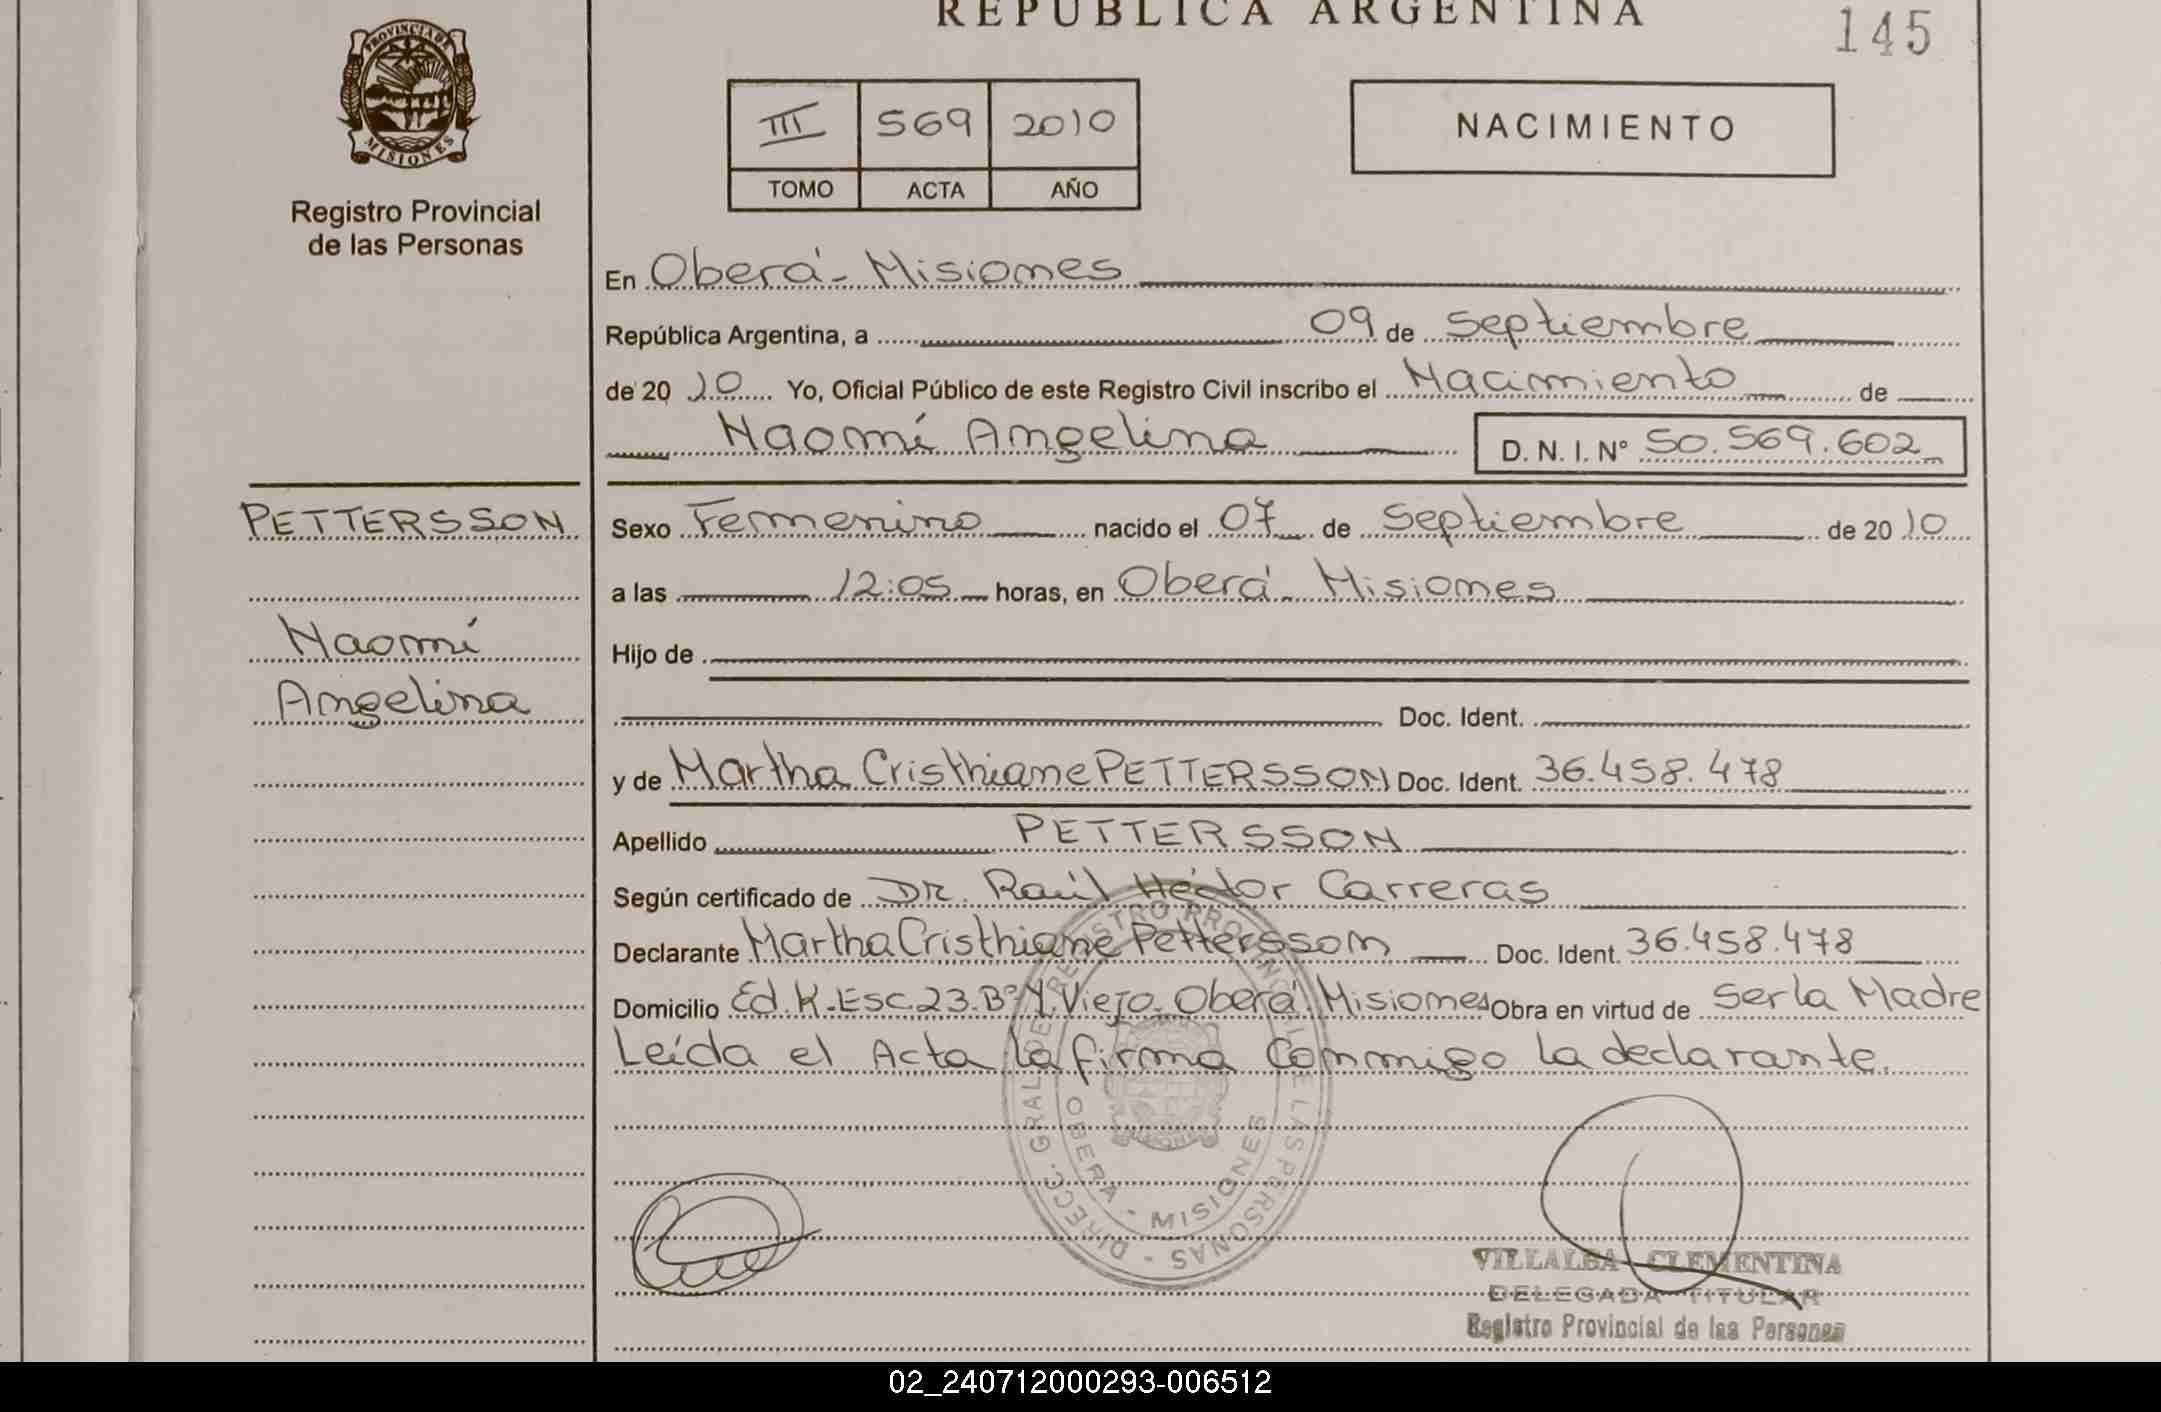 REPUBLICA ARGENTINA
145
PROVINCIA DE
MISIONES
Registro Provincial
de las Personas
III 569 2010
TOMO ACTA AÑO
NACIMIENTO
En Oberá - Misiones
República Argentina, a 09 de Septiembre
de 20 10 Yo, Oficial Público de este Registro Civil inscribo el Nacimiento de
Naomí Angelina D. N. I. Nº 50.569.602
PETTERSSON
Naomí
Angelina
Sexo Femenino nacido el 07 de Septiembre de 20 10
a las 12:05 horas, en Oberá - Misiones
Hijo de
Doc. Ident.
y de Martha Cristhiane PETTERSSON Doc. Ident. 36.458.478
Apellido PETTERSSON
Según certificado de DR. Raúl Héctor Carreras
Declarante Martha Cristhiane Pettersson Doc. Ident. 36.458.478
Domicilio Ed. K. Esc. 23. Bº Y. Viejo. Oberá. Misiones Obra en virtud de Ser la Madre
Leída el Acta la firma Conmigo la declarante.
DIRECC. GRAL. DE REGISTRO PROVINCIAL DE LAS PERSONAS
OBERA - MISIONES
VILLALBA CLEMENTINA
DELEGADA TITULAR
Registro Provincial de las Personas
02_240712000293-006512